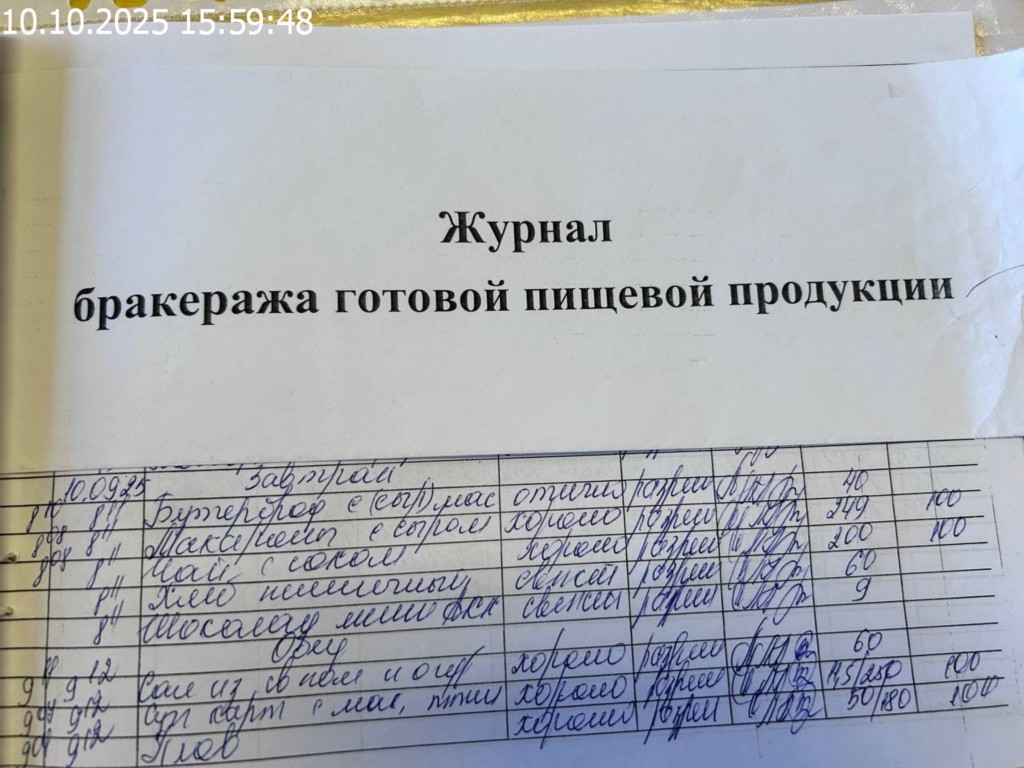 10.10.2025 15:59:48
Журнал
бракеража готовой пищевой продукции
10.09.25 Завтрак
8¹¹ Бутерброд с (сыр) мас отличн разреш 40
8⁰⁸ 8¹¹ Макароны с сыром хорошо разреш 249 100
8⁰⁸ 8¹¹ Чай с соком хорошо разреш 200 100
8¹¹ Хлеб пшеничный свежий разреш 60
8¹¹ Шоколад мини свежий разреш 9
Обед
9¹² Сал из св пом и огур хорошо разреш 60
9¹² Суп карт с мас, хорошо разреш /250 100
9¹² Плов хорошо разреш 50/180 100